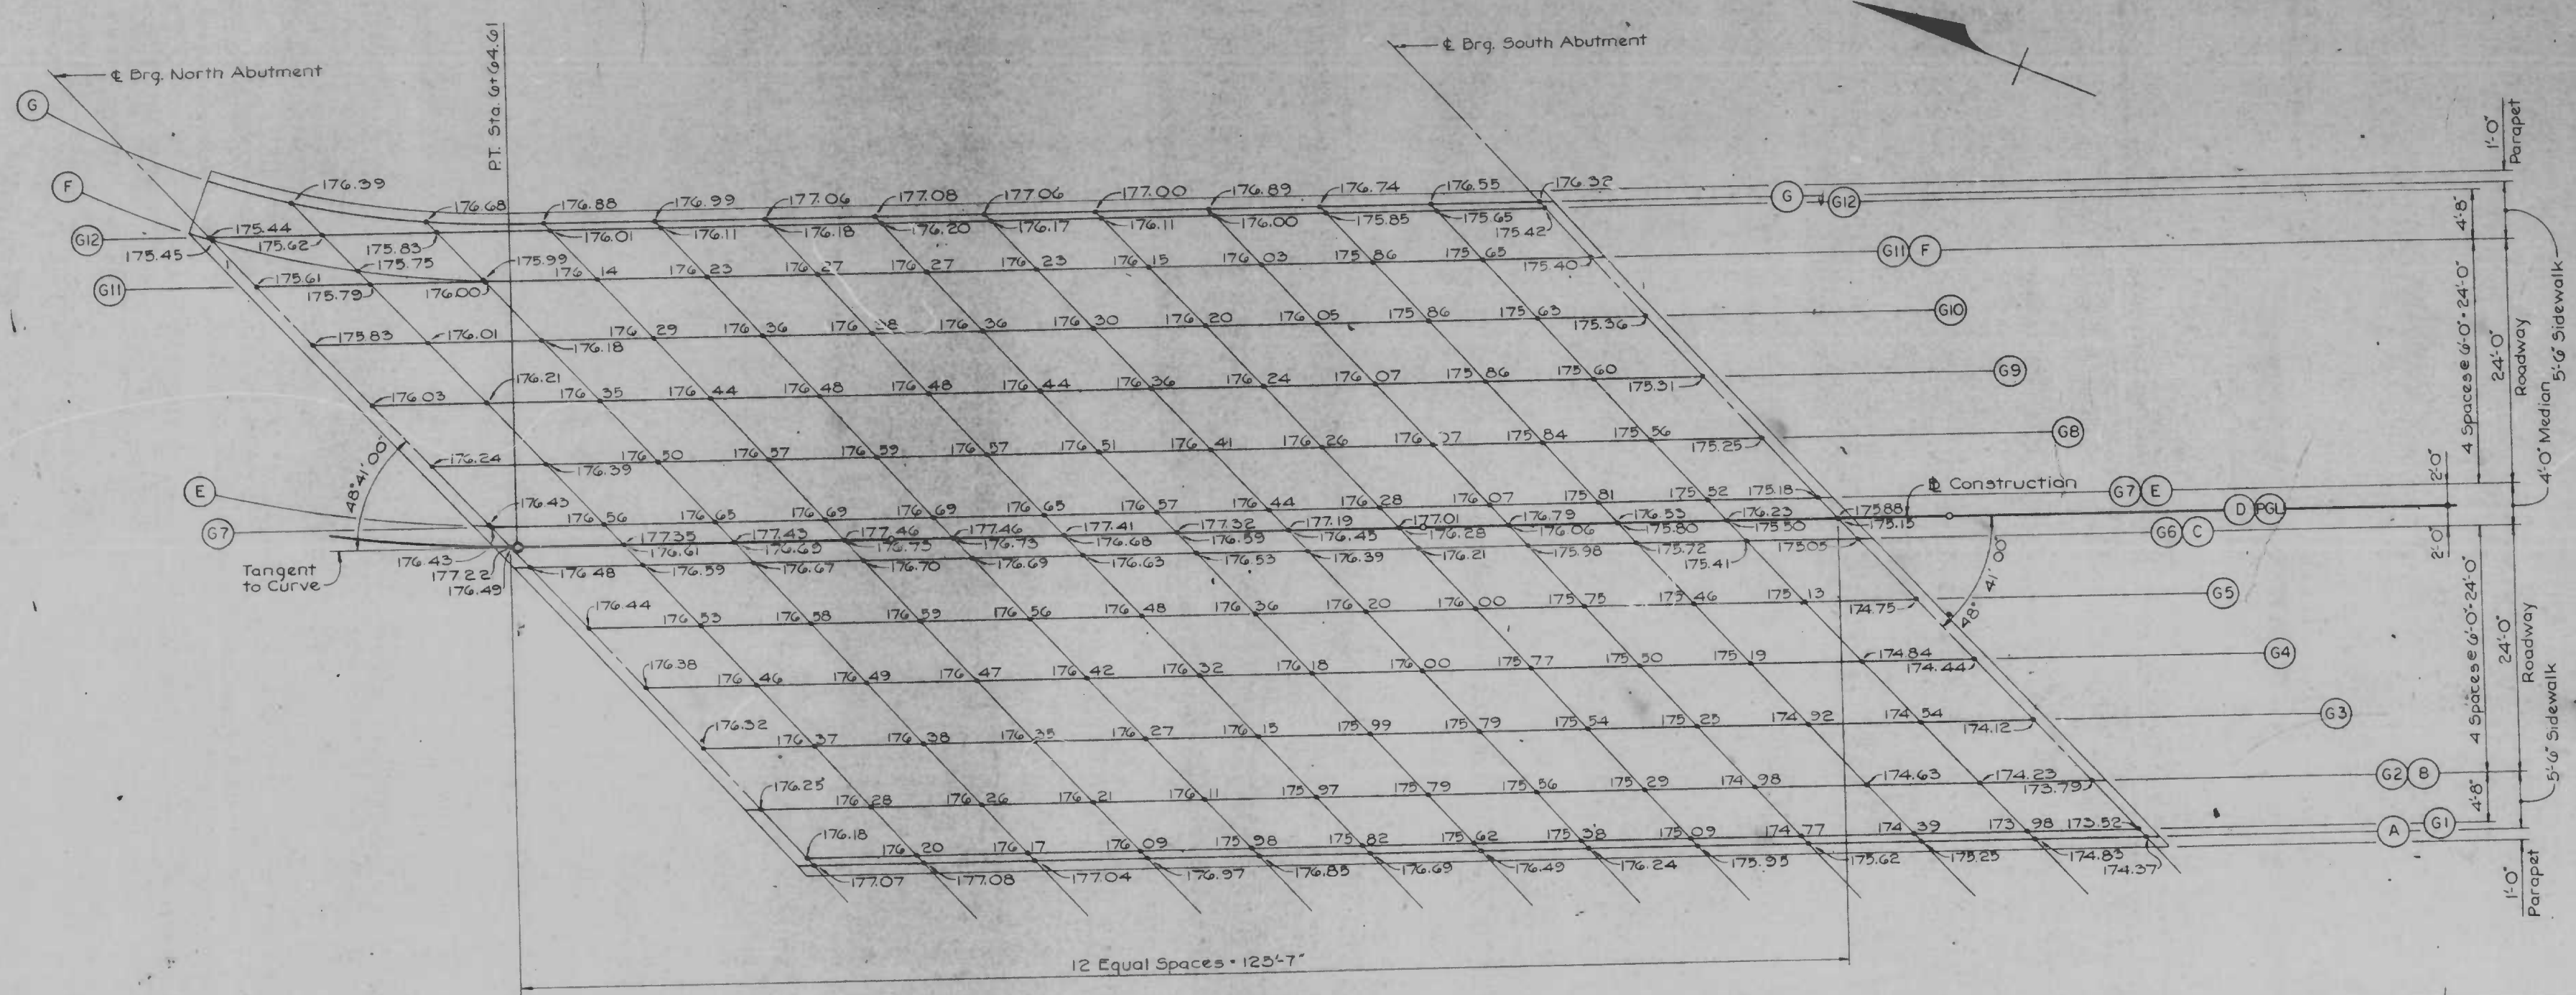 ℄ Brg. North Abutment
P.T. Sta. 6+64.61
℄ Brg. South Abutment
1'-0"
Parapet
G
F
G12
G11
176.39
176.68
176.88
176.99
177.06
177.08
177.06
177.00
176.89
176.74
176.55
176.32
G
G12
175.44
175.62
175.83
176.01
176.11
176.18
176.20
176.17
176.11
176.00
175.85
175.65
175.42
175.45
175.75
175.99
G11 F
175.61
175.79
176.00
176.14
176.23
176.27
176.27
176.23
176.15
176.03
175.86
175.65
175.40
175.83
176.01
176.18
176.29
176.36
176.36
176.30
176.20
176.05
175.86
175.63
175.36
G10
176.03
176.21
176.35
176.44
176.48
176.48
176.44
176.36
176.24
176.07
175.86
175.60
175.31
G9
176.24
176.39
176.50
176.57
176.59
176.57
176.51
176.41
176.26
175.84
175.56
175.25
G8
48° 41' 00"
E
G7
Tangent
to Curve
176.43
176.43
176.56
176.65
176.69
176.69
176.65
176.57
176.44
176.28
176.07
175.81
175.52
175.18
G7 E
Construction
177.22
177.35
177.43
177.46
177.46
177.41
177.32
177.19
177.01
176.79
176.53
176.23
175.88
D PGL
176.49
176.61
176.69
176.73
176.73
176.68
176.59
176.45
176.28
176.06
175.80
175.50
175.15
176.48
176.59
176.67
176.70
176.69
176.63
176.53
176.39
176.21
175.98
175.72
175.41
175.05
G6 C
176.44
176.53
176.58
176.59
176.56
176.48
176.36
176.20
176.00
175.75
175.46
175.13
174.75
G5
48° 41' 00"
176.38
176.46
176.49
176.47
176.42
176.32
176.18
176.00
175.77
175.50
175.19
174.84
174.44
G4
176.32
176.37
176.38
176.35
176.27
176.15
175.99
175.79
175.54
175.25
174.92
174.54
174.12
G3
176.25
176.28
176.26
176.21
176.11
175.97
175.79
175.56
175.29
174.98
174.63
174.23
173.79
G2 B
176.18
176.20
176.17
176.09
175.98
175.82
175.62
175.38
175.09
174.77
174.39
173.98
173.52
A G1
177.07
177.08
177.04
176.97
176.85
176.69
176.49
176.24
175.95
175.62
175.25
174.83
174.37
12 Equal Spaces = 125'-7"
4'-8"
4 Spaces @ 6'-0" = 24'-0"
24'-0"
Roadway
5'-6" Sidewalk
2'-0"
4'-0" Median
2'-0"
4 Spaces @ 6'-0" = 24'-0"
24'-0"
Roadway
5'-6" Sidewalk
4'-8"
1'-0"
Parapet